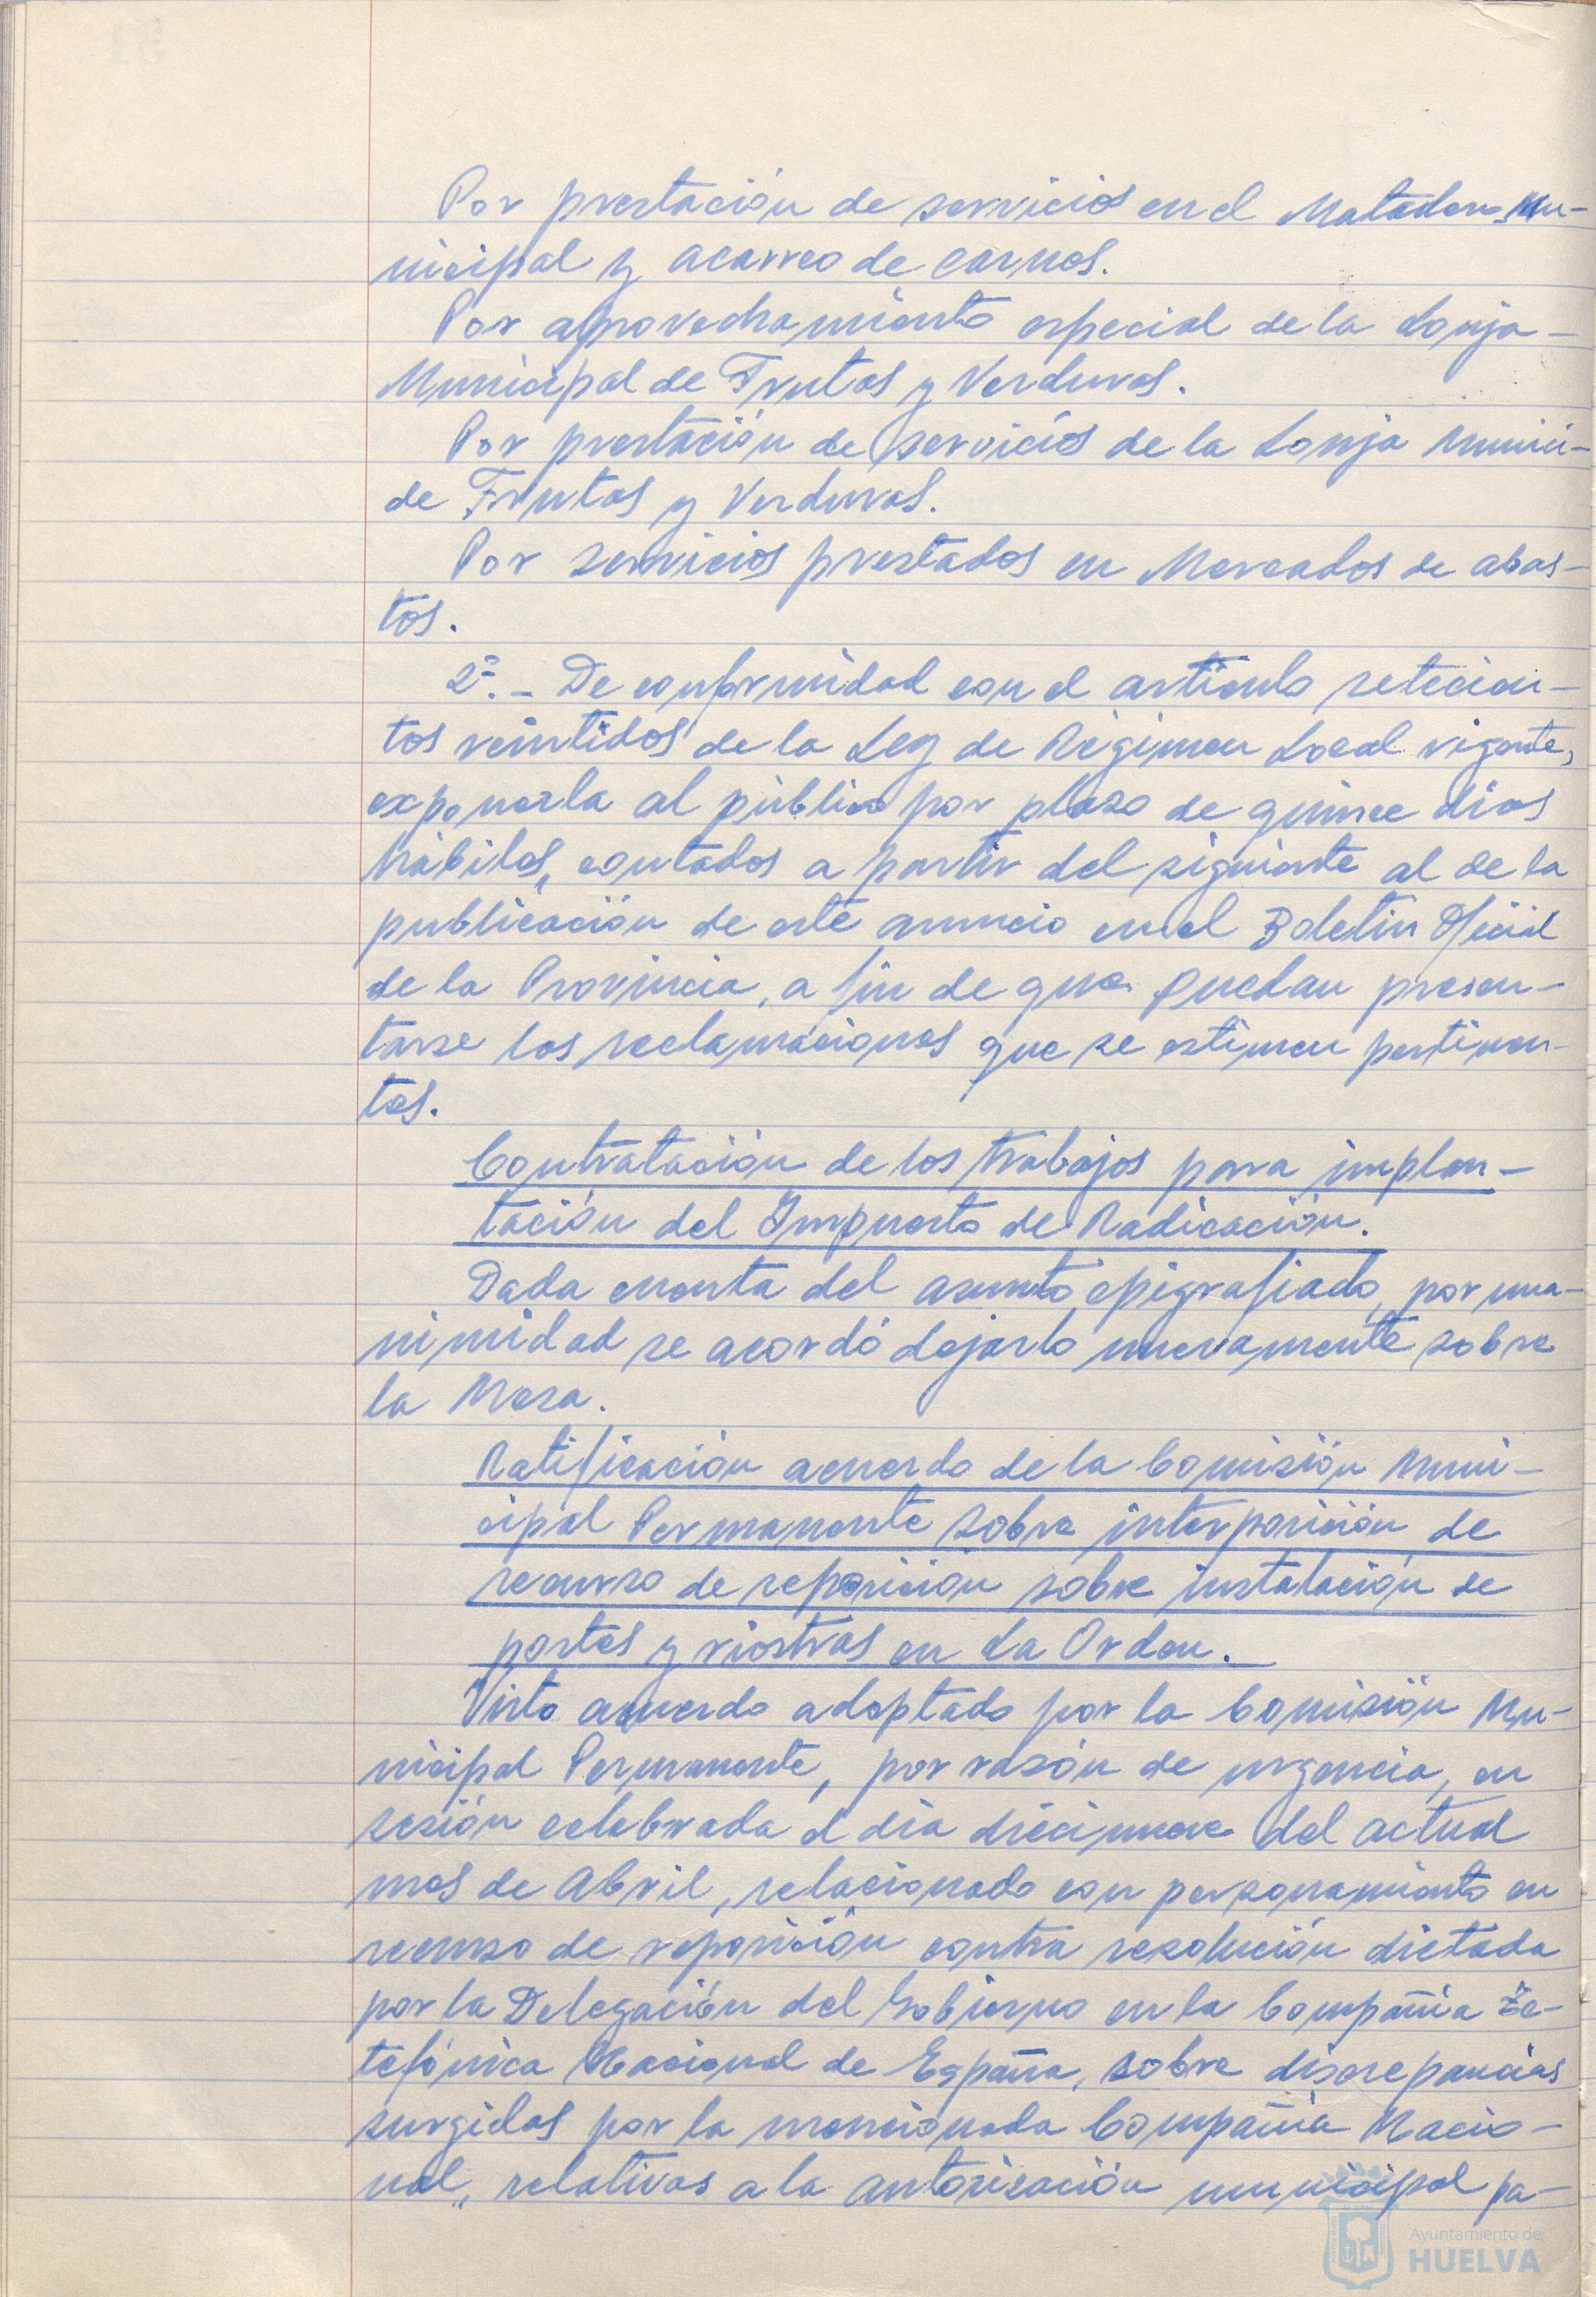 Por prestación de servicios en el Matadero Mu-
nicipal y acarreo de carnes.
Por aprovechamiento especial de la Lonja
Municipal de Frutas y Verduras.
Por prestación de servicios de la Lonja Munici-
de Frutas y Verduras.
Por servicios prestados en Mercados de abas-
tos.
2º.- De conformidad con el artículo setecien-
tos veintidos de la Ley de Régimen Local vigente,
exponerla al público por plazo de quince dias
hábiles, contados a partir del siguiente al de la
publicación de este anuncio en el Boletin Oficial
de la Provincia, a fin de que puedan presen-
tarse las reclamaciones que se estimen pertinen-
tes.
Contratación de los trabajos para implan-
tación del Impuesto de Radicación.
Dada cuenta del asunto epigrafiado, por una-
nimidad se acordó dejarlo nuevamente sobre
la Mesa.
Ratificación acuerdo de la Comisión Muni-
cipal Permanente sobre interposición de
recurso de reposición sobre instalación de
postes y riostras en La Orden.
Visto acuerdo adoptado por la Comisión Mu-
nicipal Permanente, por razón de urgencia, en
sesión celebrada el dia diecinueve del actual
mes de Abril, relacionado con personamiento en
recurso de reposición contra resolución dictada
por la Delegación del Gobierno en la Compañia Te-
lefónica Nacional de España, sobre discrepancias
surgidas por la mencionada Compañia Nacio-
nal, relativas a la autorización municipal pa-
Ayuntamiento de
HUELVA